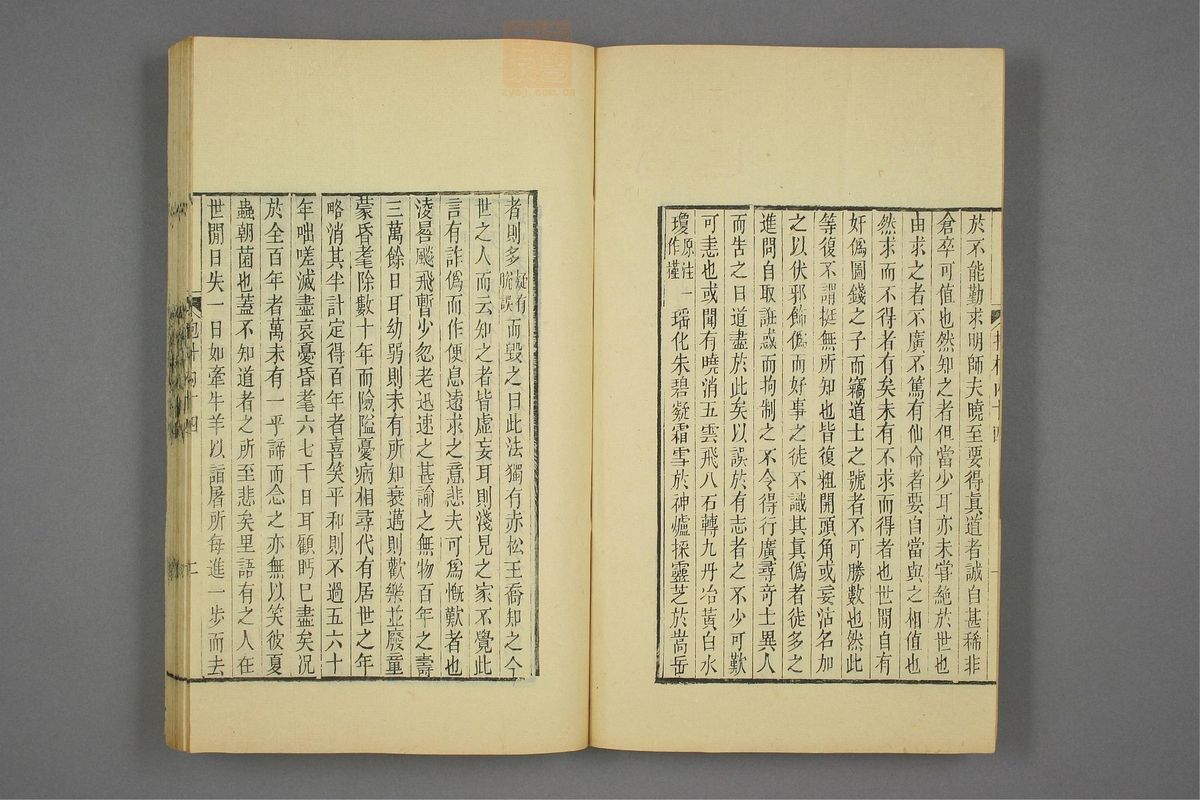 於不能勤求明師夫曉至要得真道者誠自甚稀非
倉卒可值也然知之者但當少耳亦未嘗絶於世也
由求之者不廣不篤有仙命者要自當與之相值也
然求而不得者有矣未有不求而得者也世閒自有
奸僞圖錢之子而竊道士之號者不可勝數也然此
等復不謂挺無所知也皆復粗開頭角或妄沽名加
之以伏邪飾僞而好事之徒不識其真僞者徒多之
進問自取誑惑而拘制之不令得行廣尋奇士異人
而告之曰道盡於此矣以誤於有志者之不少可歎
可恚也或聞有曉消五雲飛八石轉九丹冶黃白水
瓊原注一作瓘瑶化朱碧凝霜雪於神爐採靈芝於嵩岳
者則多疑有脫誤而毀之曰此法獨有赤松王喬知之今
世之人而云知之者皆虛妄耳則淺見之家不覺此
言有詐僞而作便息遠求之意悲夫可爲慨歎者也
淩晷飈飛暫少忽老迅速之甚諭之無物百年之壽
三萬餘日耳幼弱則未有所知衰邁則歡樂並廢童
蒙昏耄除數十年而險隘憂病相尋代有居世之年
略消其半計定得百年者喜笑平和則不過五六十
年咄嗟滅盡哀憂昏耄六七千日耳顧眄已盡矣况
於全百年者萬未有一乎諦而念之亦無以笑彼夏
蟲朝菌也蓋不知道者之所至悲矣里語有之人在
世閒日失一日如牽牛羊以詣屠所每進一步而去